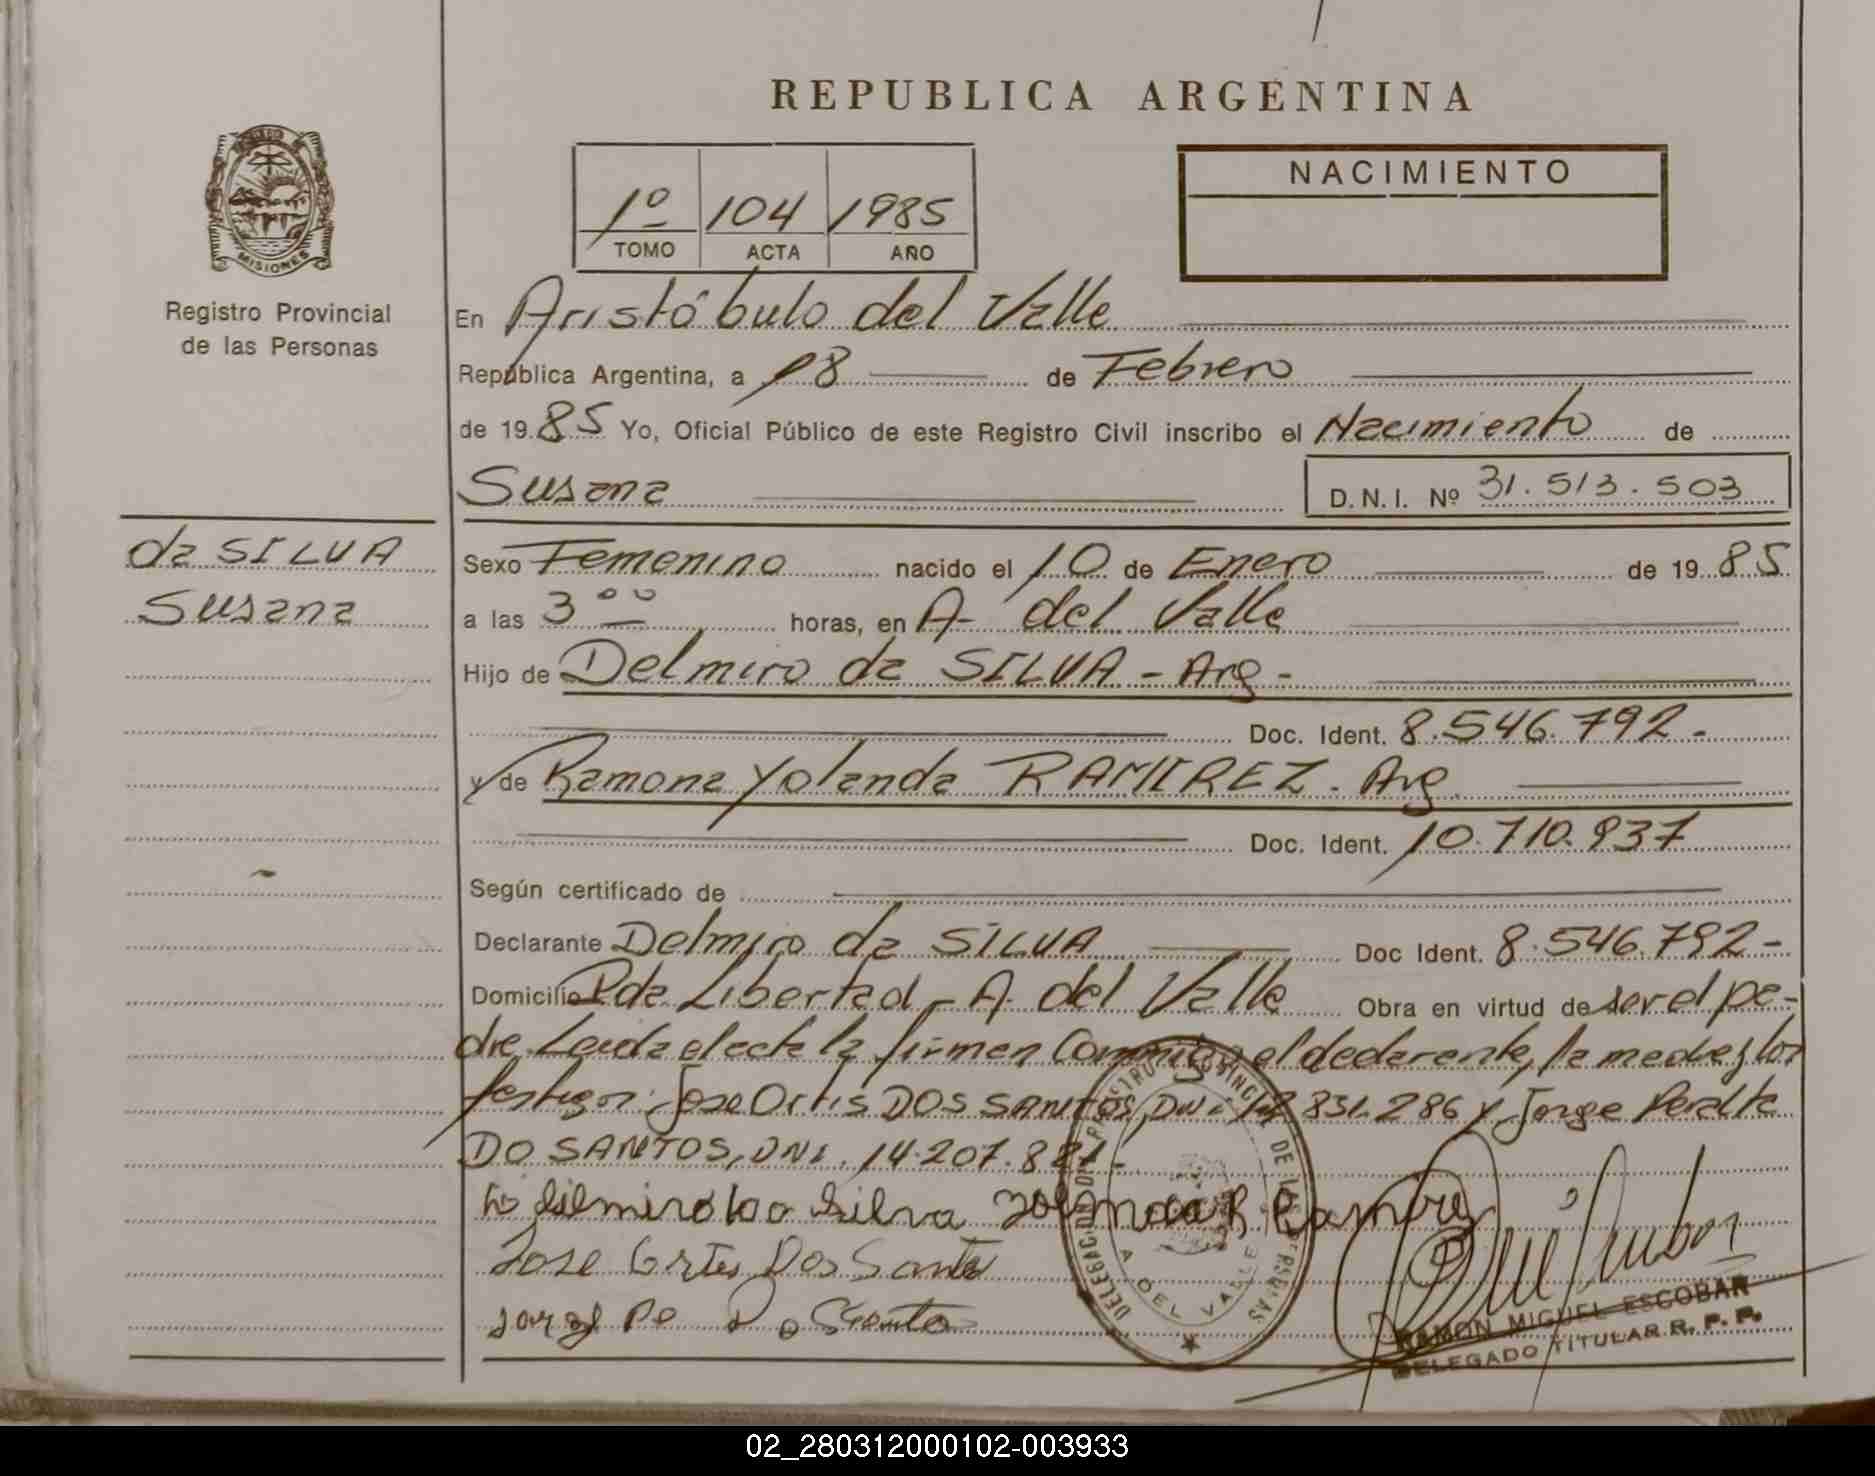 REPUBLICA ARGENTINA
MISIONES
Registro Provincial
de las Personas
1º 104 1985
TOMO ACTA AÑO
NACIMIENTO
En Aristóbulo del Valle
República Argentina, a 18 de Febrero
de 1985 Yo, Oficial Público de este Registro Civil inscribo el Nacimiento de
Susana
D.N.I. Nº 31.513.503
da SILVA
Susana
Sexo Femenino nacido el 10 de Enero de 1985
a las 3 00 horas, en A- del Valle
Hijo de Delmiro da SILVA - Arg -
Doc. Ident. 8.546.792-
y de Ramona Yolanda RAMIREZ. Arg.
Doc. Ident. 10.710.937
Según certificado de
Declarante Delmiro da SILVA Doc Ident. 8.546.792-
Domicilio Pda Libertad - A. del Valle Obra en virtud de ser el pa-
dre. Leida el acta la firman Conmigo el declarante, la madre y los
testigos: Jose Ortis DOS SANTOS, DNI. 831.286 y Jorge Peralta
DO SANTOS, DNI. 14.207.
Silva
Jose Ortis Dos Santos
DELEGACION REGISTRO PROVINCIAL DE LAS PERSONAS
A. DEL VALLE
RAMON MIGUEL ESCOBAR
DELEGADO TITULAR R. P. P.
02_280312000102-003933